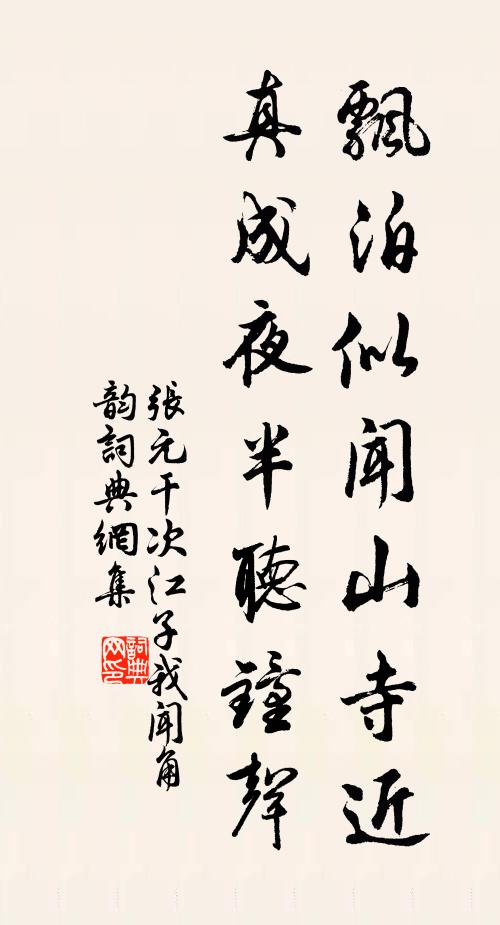 飄泊似聞山寺近
真成夜半聽鐘聲
張元干次江子我聞角
韵詞典網集
詞典网印